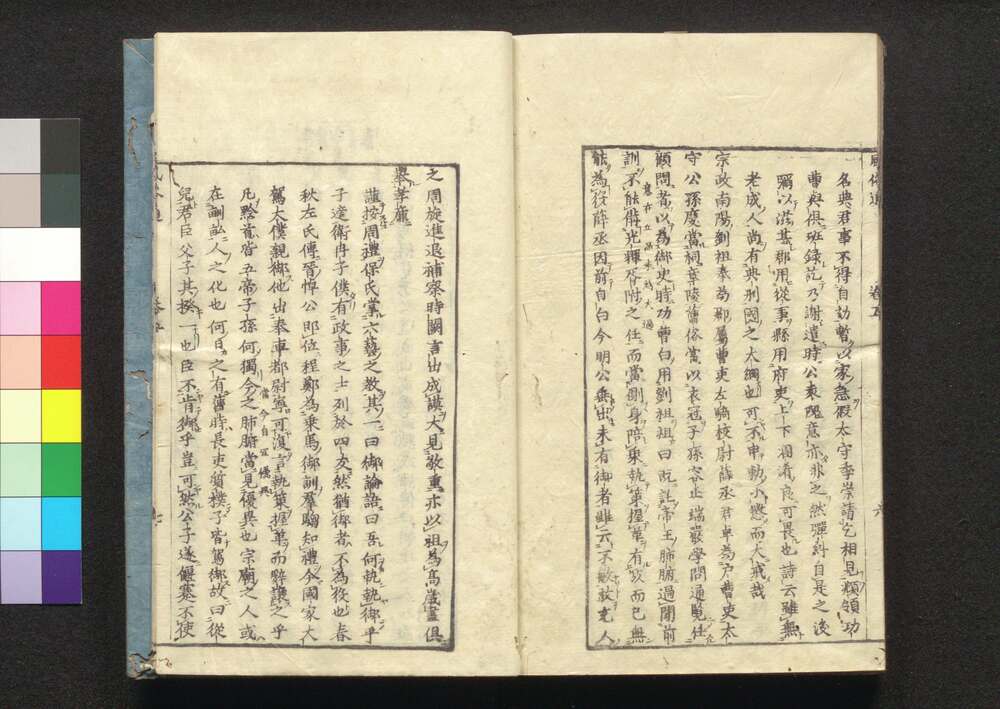 風俗通 卷五 六
名典君事不得自訪暫以家急假太守李崇請乞相見頫領功
曹與俱班錄訖乃謝遣時公表愧意亦非之然彈糾自是之後
獨以洪基郡用從事縣用府吏上下溷淆良可畏也詩云雖無
老成人尚有典刑國之大綱也可不申勑小懲而大戒哉
宗政南陽劉祖奉為郡屬曹吏左騎校尉薛丞君卓為戶曹吏太
守公孫慶當祠章陵舊俗常以衣冠子孫容止端嚴學問通覽任
顧問者以為御史時功曹白用劉祖祖曰既託帝王肺腑過聞前
意在立品未免太過
訓不能備光輝胥附之任而當側身陪乘執策握革有死而已無
能為役薛丞因前自白今明公垂出未有御者雖云不敏敢充人
之周旋進退補察時闕言出成謨大見敬重亦以祖為高歲盡俱
舉孝廉
謹按周禮保氏掌六藝之教其一曰御論語曰吾何執執御乎
子適衛冉子僕有政事之士列於四友然猶御者不為役也春
秋左氏傳晉悼公即位程鄭為乘馬御訓羣騶知禮今國家大
駕大僕親御他出奉車都尉寧可復言執策握革而辭讓之乎
當今自宜優異
凡黔首皆五帝子孫何獨今之肺腑當見優異也宗廟之人或
在甽畝人之化也何日之有薄時長吏質樸子皆駕御故曰從
兒君臣父子其揆一也臣不肯御乎豈可然公子遂偃蹇不使